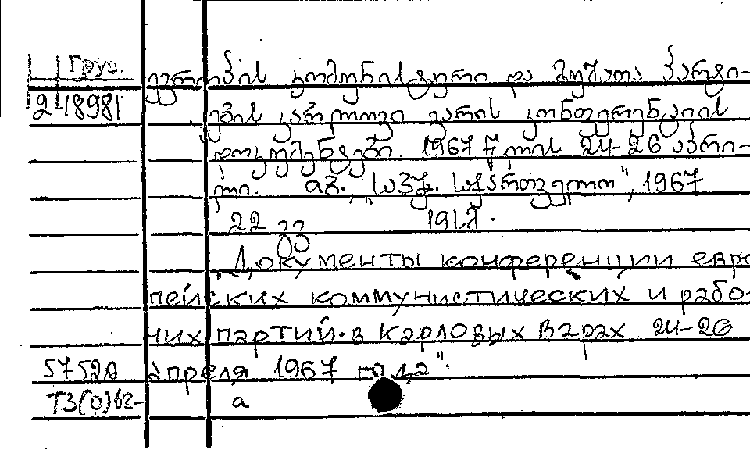 Груз.
ევროპის კომუნისტური და მუშათა პარტი-
2-18981 ების კარლოვი ვარის კონფერენციის
დოკუმენტები. 1967 წლის 24-26 აპრი-
ლი. თბ., "საბჭ. საქართველო", 1967
22 გვ 19სმ.
"Документы конференции евро
пейских коммунистических и рабо
чих партий в Карловых Варах 24-26
апреля 1967 года".
а